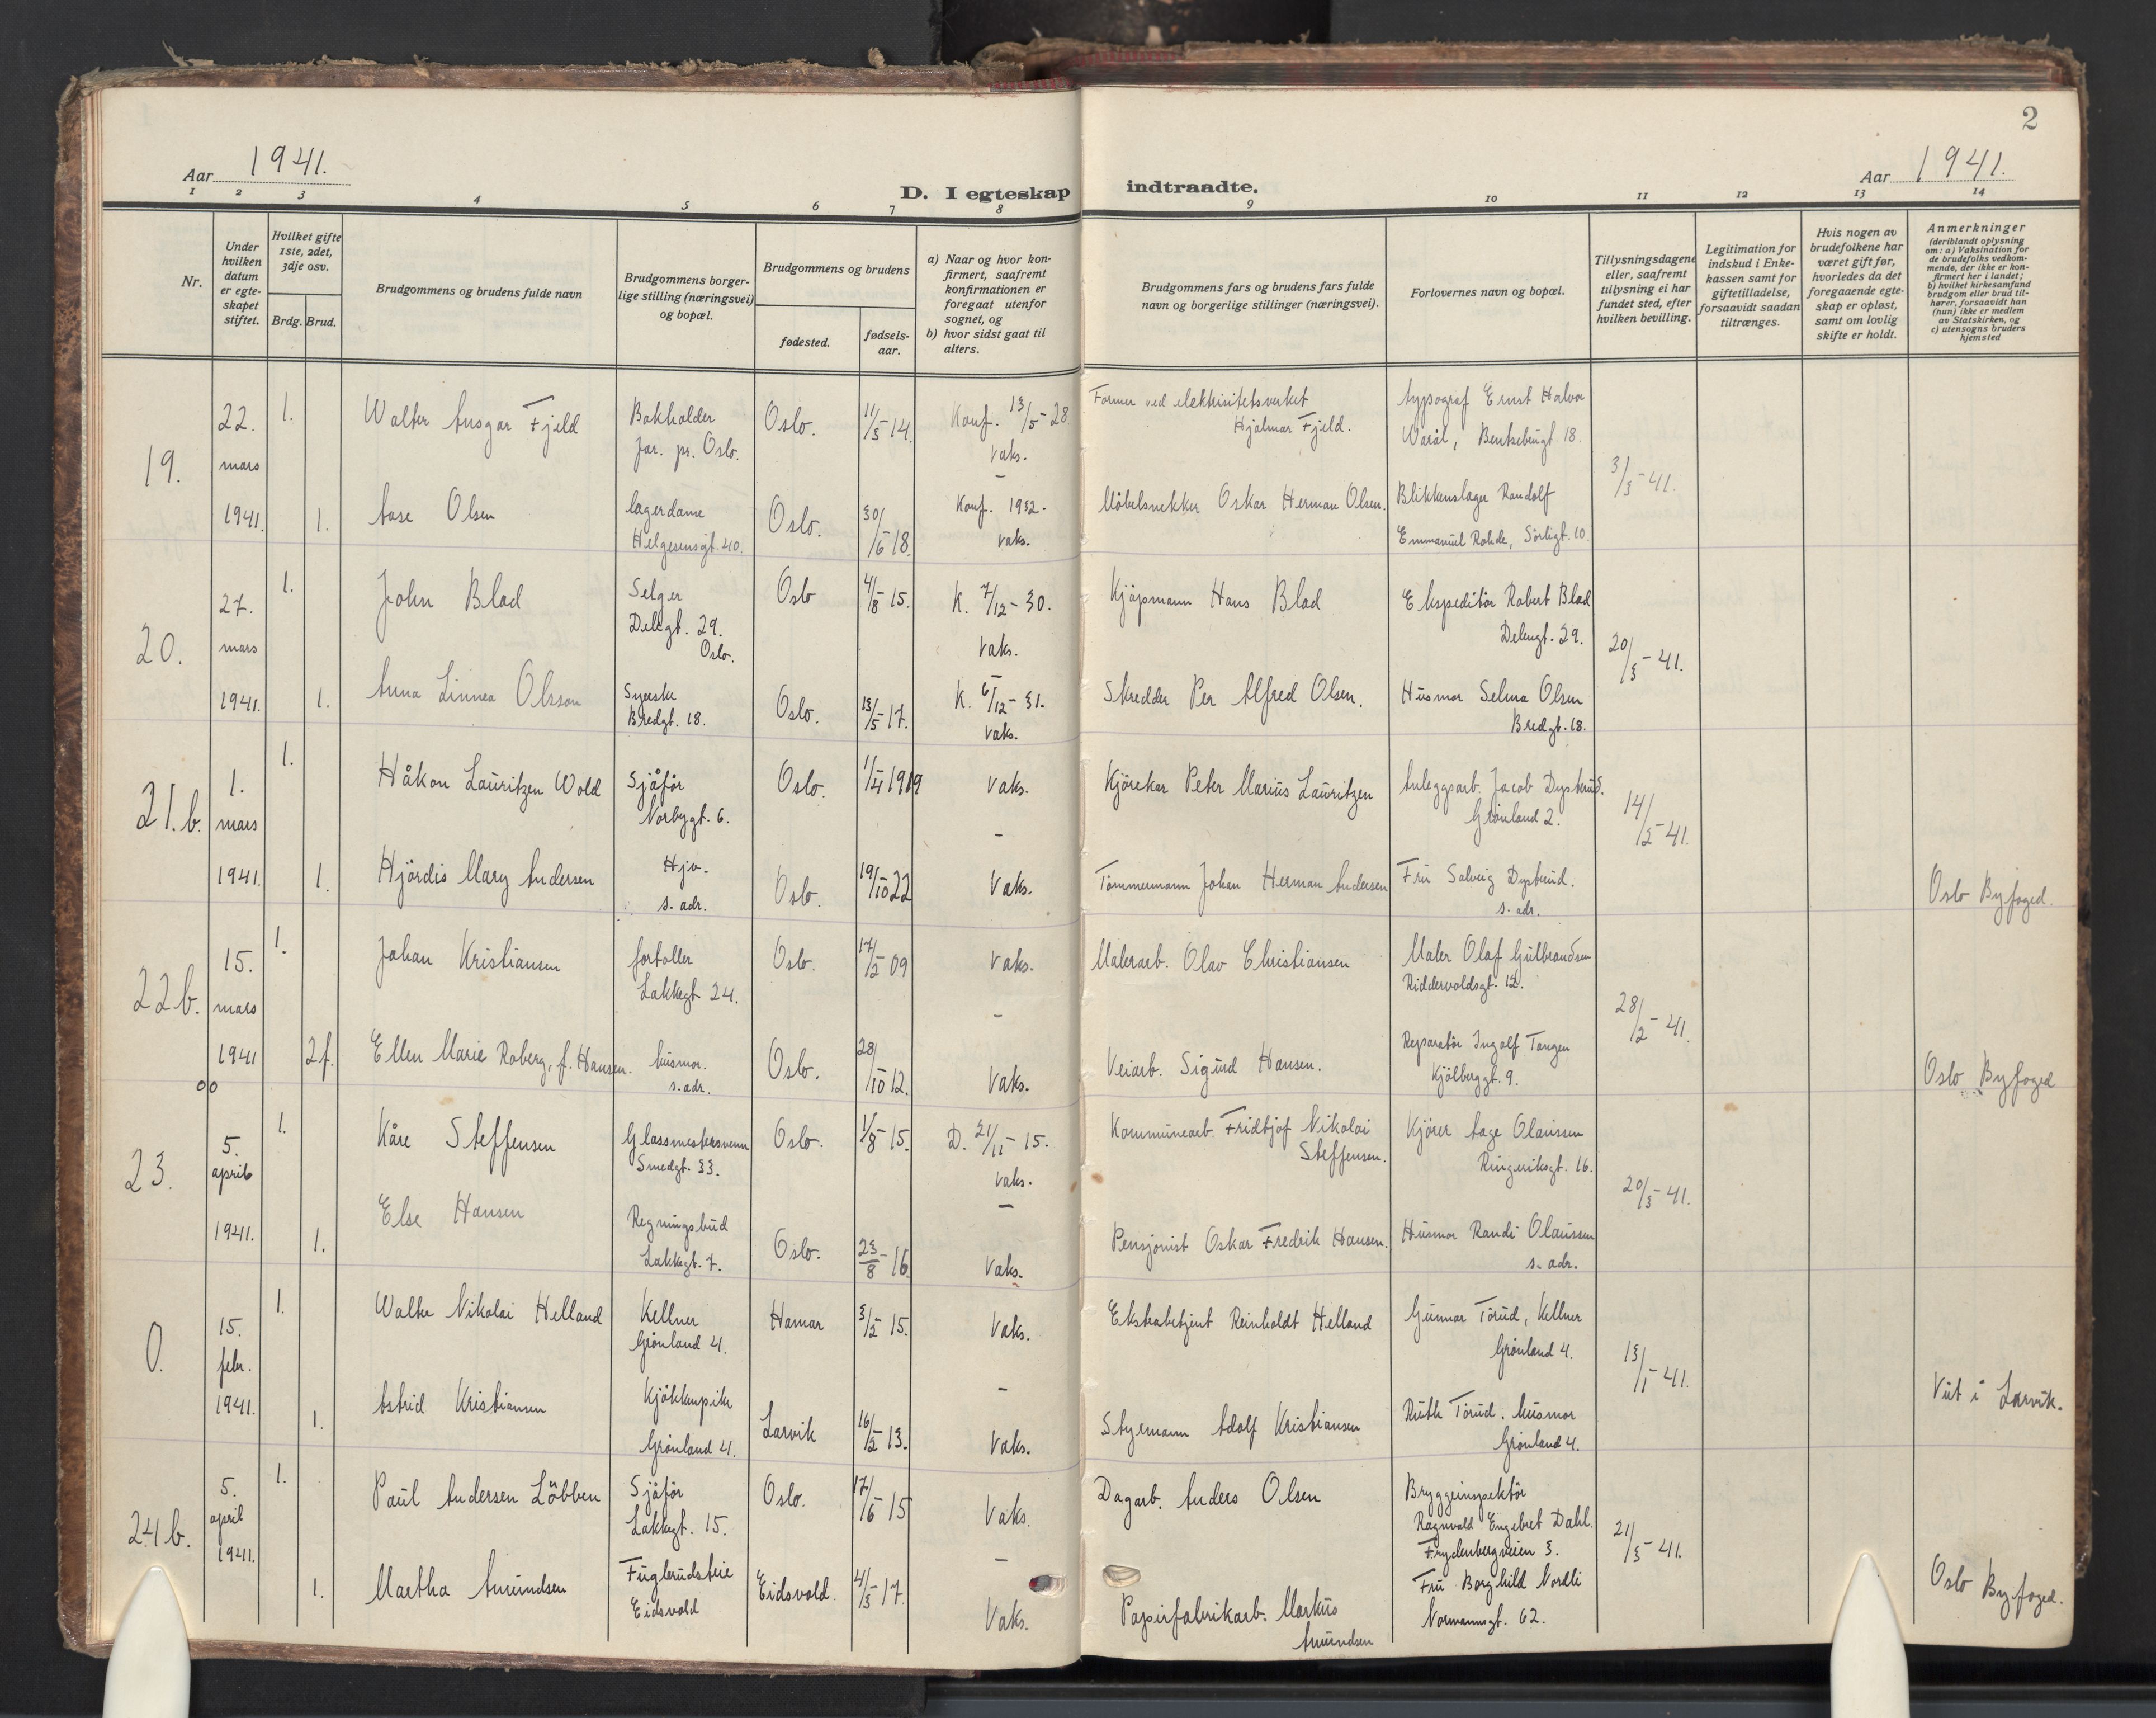 2
Aar 1941.
Aar 1941.
D. I egteskap indtraadte.
1 2 3 4 5 6 7 8 9 10 11 12 13 14
Nr.
Under hvilken datum er egte-skapet stiftet.
Hvilket gifte 1ste, 2det, 3dje osv.
Brdg. Brud.
Brudgommens og brudens fulde navn
Brudgommens borger-lige stilling (næringsvei) og bopæl.
Brudgommens og brudens
fødested.
fødsels-aar.
a) Naar og hvor kon-firmert, saafremt konfirmationen er foregaat utenfor sognet, og
b) hvor sidst gaat til alters.
Brudgommens fars og brudens fars fulde navn og borgerlige stillinger (næringsvei).
Forlovernes navn og bopæl.
Tillysningsdagene eller, saafremt tillysning ei har fundet sted, efter hvilken bevilling.
Legitimation for indskud i Enke-kassen samt for giftetilladelse, forsaavidt saadan tiltrænges.
Hvis nogen av brudefolkene har været gift før, hvorledes da det foregaaende egte-skap er opløst, samt om lovlig skifte er holdt.
Anmerkninger
(deriblandt oplysning om: a) Vaksination for de brudefolks vedkom-mende, der ikke er kon-firmert her i landet; b) hvilket kirkesamfund brudgom eller brud til-hører, forsaavidt han (hun) ikke er medlem av Statskirken, og c) utensogns bruders hjemsted
19. 22. mars 1941.
1. Walter Ansgar Fjeld
Bokholder Jar. pr. Oslo.
Oslo. 11/3-14.
Konf. 13/5-28 vaks.
Former ved elektrisitetsverket Hjalmar Fjeld.
typograf Ernst Halvor
Bentsebrugt. 18.
3/3-41.
1. Aase Olsen
lagerdame Helgesensgt. 40.
Oslo. 30/6 18.
Konf. 1932. vaks.
Möbelsnekker Oskar Herman Olsen.
Blikkenslager Randolf
Emmanuel Rohde, Sörligt. 10.
20. 27. mars 1941.
1. John Blad
Selger Delegt. 29. Oslo.
Oslo 4/8-15.
K. 7/12-30. vaks.
Kjöpmann Hans Blad
Ekspeditör Robert Blad
Delengt. 29.
20/3-41.
1. Anna Linnea Olsson
Syerske Bredgt. 18.
Oslo. 13/5-17.
K. 6/12-31. vaks.
Skredder Per Alfred Olsen.
Husmor Selma Olsen
Bredgt. 18.
21.b. 1. mars 1941.
1. Håkon Lauritzen Wold
Sjåför Norbygt. 6.
Oslo. 1/4 1919
vaks.
Kjörekar Peter Marius Lauritzen
Anleggsarb. Jacob Dysterud.
Grönland 2.
14/2-41.
1. Hjördis Mary Andersen
Hjv. s. adr.
Oslo. 19/10 22
Vaks.
Tömmermann Johan Herman Andersen
Fru Solveig Dysterud.
s. adr.
Oslo Byfoged.
22b. 15. mars 1941
1. Johan Kristiansen
fortoller Lakkegt. 24.
Oslo. 17/2 09
Vaks.
Malerarb. Olav Christiansen
Maler Olaf Gulbrandsen
Riddervoldsgt. 12.
28/2-41.
2f. Ellen Marie Roberg, f. Hansen.
husmor. s. adr.
Oslo. 28/10 12.
Vaks.
Veiarb. Sigurd Hansen.
Reparatör Ingolf Tangen
Kjölberggt. 9.
Oslo Byfoged
00
23. 5. april 1941.
1. Kåre Steffensen
Glassmestersvenn Smedgt. 33.
Oslo. 1/8-15.
D. 21/11-15. vaks.
Kommunearb. Fridtjof Nikolai Steffensen.
Kjörer Aage Olaussen
Ringeriksgt. 16.
20/3-41.
1. Else Hansen
Regningsbud Lakkegt. 7.
Oslo. 23/8-16.
Vaks.
Pensjonist Oskar Fredrik Hansen.
Husmor Randi Olaussen
s. adr.
0. 15. febr. 1941.
1. Walter Nikolai Helland
Kellner Grönland 4.
Hamar 3/2 15.
Vaks.
Ekstrabetjent Reinholdt Helland
Gunnar Torud, Kellner
Grönland 4.
13/1-41.
1. Astrid Kristiansen
Kjökkenpike Grönland 4.
Larvik 16/2 13.
Vaks.
Styrmann Adolf Kristiansen
Ruth Torud, husmor
Grönland 4.
Viet i Larvik.
24.b. 5. april 1941.
1. Paul Andersen Löbben
Sjåför Lakkegt. 15.
Oslo. 17/6 15
Vaks.
Dagarb. Anders Olsen
Bryggeinspektör
Ragnvald Engebret Dahl.
Frydenbergveien 3.
21/3-41.
1. Martha Amundsen
Fuglerudsteie Eidsvold
Eidsvold. 4/3 17.
Vaks.
Papirfabrikarb. Markus Amundsen
Fru Borghild Nordli
Normannsgt. 62.
Oslo Byfoged.